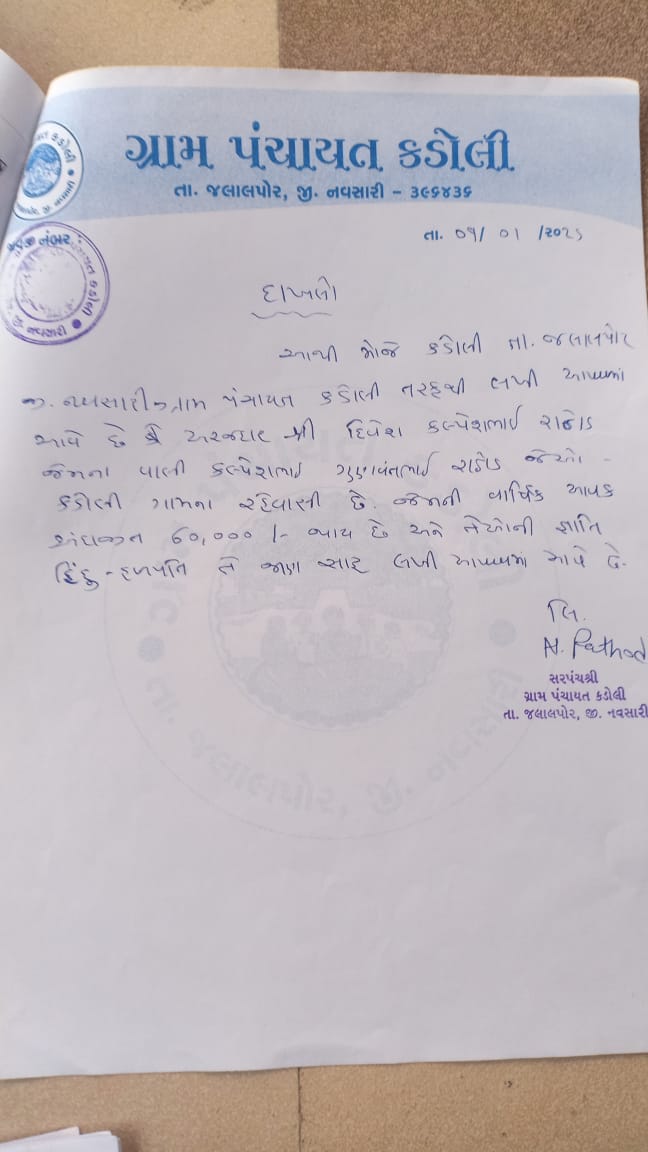 ગ્રામ પંચાયત કડોલી
તા. જલાલપોર, જી. નવસારી - ૩૯૬૪૩૬
તા. 01/ 01 /૨૦૨૬
જાવક નંબર
પંચાયત કડોલી
જી. નવસારી
દાખલો
આથી મોજે કડોલી તા. જલાલપોર
જી. નવસારી ગ્રામ પંચાયત કડોલી તરફથી લખી આપવામાં
આવે છે કે અરજદાર શ્રી દિવેશ કલ્પેશભાઈ રાઠોડ
જેમના વાલી કલ્પેશભાઈ ગુણવંતભાઈ રાઠોડ જેઓ -
કડોલી ગામના રહેવાસી છે. જેમની વાર્ષિક આવક
અંદાજીત 60,000 /- થાય છે અને તેઓની જ્ઞાતિ
હિંદુ - હળપતિ તે જાણ સારૂ લખી આપવામાં આવે છે.
લિ.
N. Rathod
સરપંચશ્રી
ગ્રામ પંચાયત કડોલી
તા. જલાલપોર, જી. નવસારી
તા. જલાલપોર, જી. નવસારી